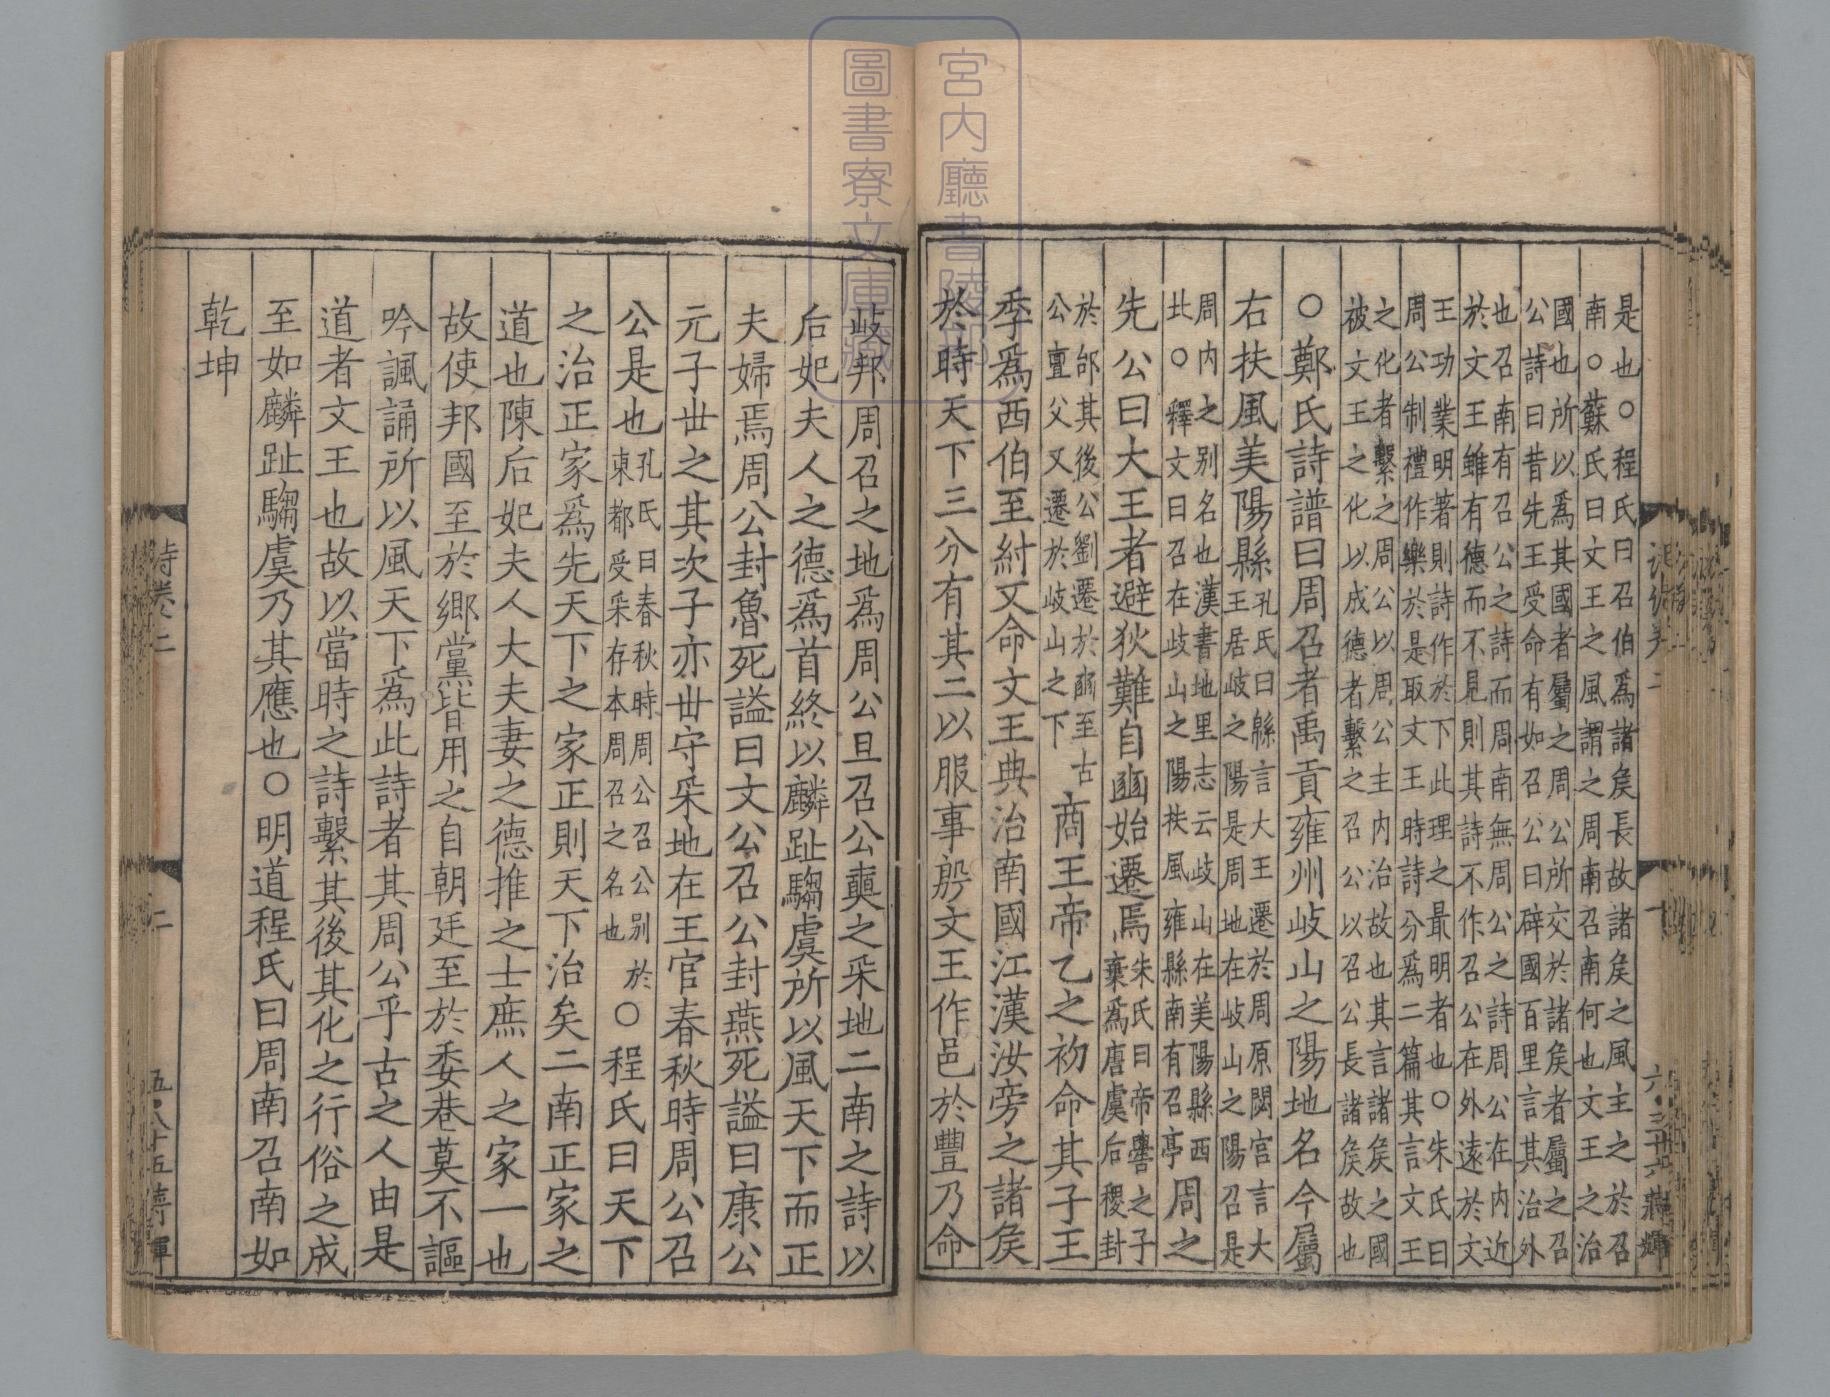 是也○程氏曰召伯爲諸矦長故諸矦之風主之於召
南○蘇氏曰文王之風謂之周南召南何也文王之治
國也所以爲其國者屬之周公所交於諸矦者屬之召
公詩曰昔先王受命有如召公曰辟國百里言其治外
也召南有召公之詩而周南無周公之詩周公在内近
於文王雖有德而不見則其詩不作召公在外遠於文
王功業明著則詩作於下此理之最明者也○朱氏曰
周公制禮作樂於是取文王時詩分爲二篇其言文王
之化者繫之周公以周公主内治故也其言諸矦之國
被文王之化以成德者繫之召公以召公長諸矦故也
○鄭氏詩譜曰周召者禹貢雍州岐山之陽地名今屬
右扶風美陽縣孔氏曰緜言大王遷於周原閟宮言大
王居岐之陽是周地在岐山之陽召是
周内之别名也漢書地里志云岐山在美陽縣西
北○釋文曰召在岐山之陽扶風雍縣南有召亭周之
先公曰大王者避狄難自豳始遷焉朱氏曰帝嚳之子
棄爲唐虞后稷封
於邰其後公劉遷於豳至古
公亶父又遷於岐山之下商王帝乙之初命其子王
季爲西伯至紂又命文王典治南國江漢汝旁之諸矦
於時天下三分有其二以服事殷文王作邑於豐乃命
岐邦周召之地爲周公旦召公奭之采地二南之詩以
后妃夫人之德爲首終以麟趾騶虞所以風天下而正
夫婦焉周公封魯死謚曰文公召公封燕死謚曰康公
元子丗之其次子亦丗守采地在王官春秋時周公召
公是也孔氏曰春秋時周公召公别於
東都受采存本周召之名也○程氏曰天下
之治正家爲先天下之家正則天下治矣二南正家之
道也陳后妃夫人大夫妻之德推之士庶人之家一也
故使邦國至於鄉黨皆用之自朝廷至於委巷莫不謳
吟諷誦所以風天下爲此詩者其周公乎古之人由是
道者文王也故以當時之詩繫其後其化之行俗之成
至如麟趾騶虞乃其應也○明道程氏曰周南召南如
乾坤
詩卷二
二
宮内廳書陵部
圖書寮文庫藏